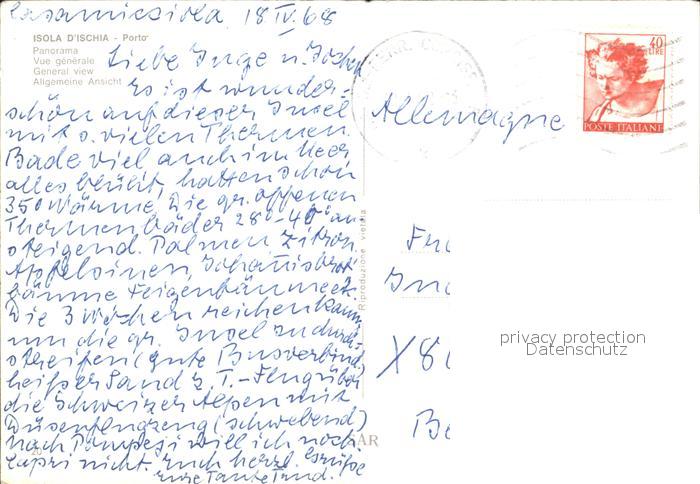 Casamicciola 18 IV. 68
ISOLA D'ISCHIA - Porto
Panorama
Vue générale
General view
Allgemeine Ansicht
Liebe Inge u. Jochen
es ist wunder-
schön auf dieser Insel
mit s. vielen Thermen.
Bade viel auch im Meer
alles blüht, hatten schon
35° Wärme. Die gr. offenen
Thermenbäder 28°-40° an
steigend. Palmen Zitron.
Apfelsinen, Johanisbrot
bäume Feigenbäume etc.
Die 3 Wochen reichen kaum
um die gr. Insel zu durch
streifen (gute Busverbind.
heißer Sand z. T. - Flug über
die Schweizer Alpen mit
Düsenflugzeug (schwebend)
nach Pompeji will ich noch
Capri nicht. Euch herzl. Grüße
Eure Tante Trud.
Riproduzione vietata
Allemagne
40
LIRE
POSTE ITALIANE
Fr
In
X 8
Be
privacy protection
Datenschutz
20
AR